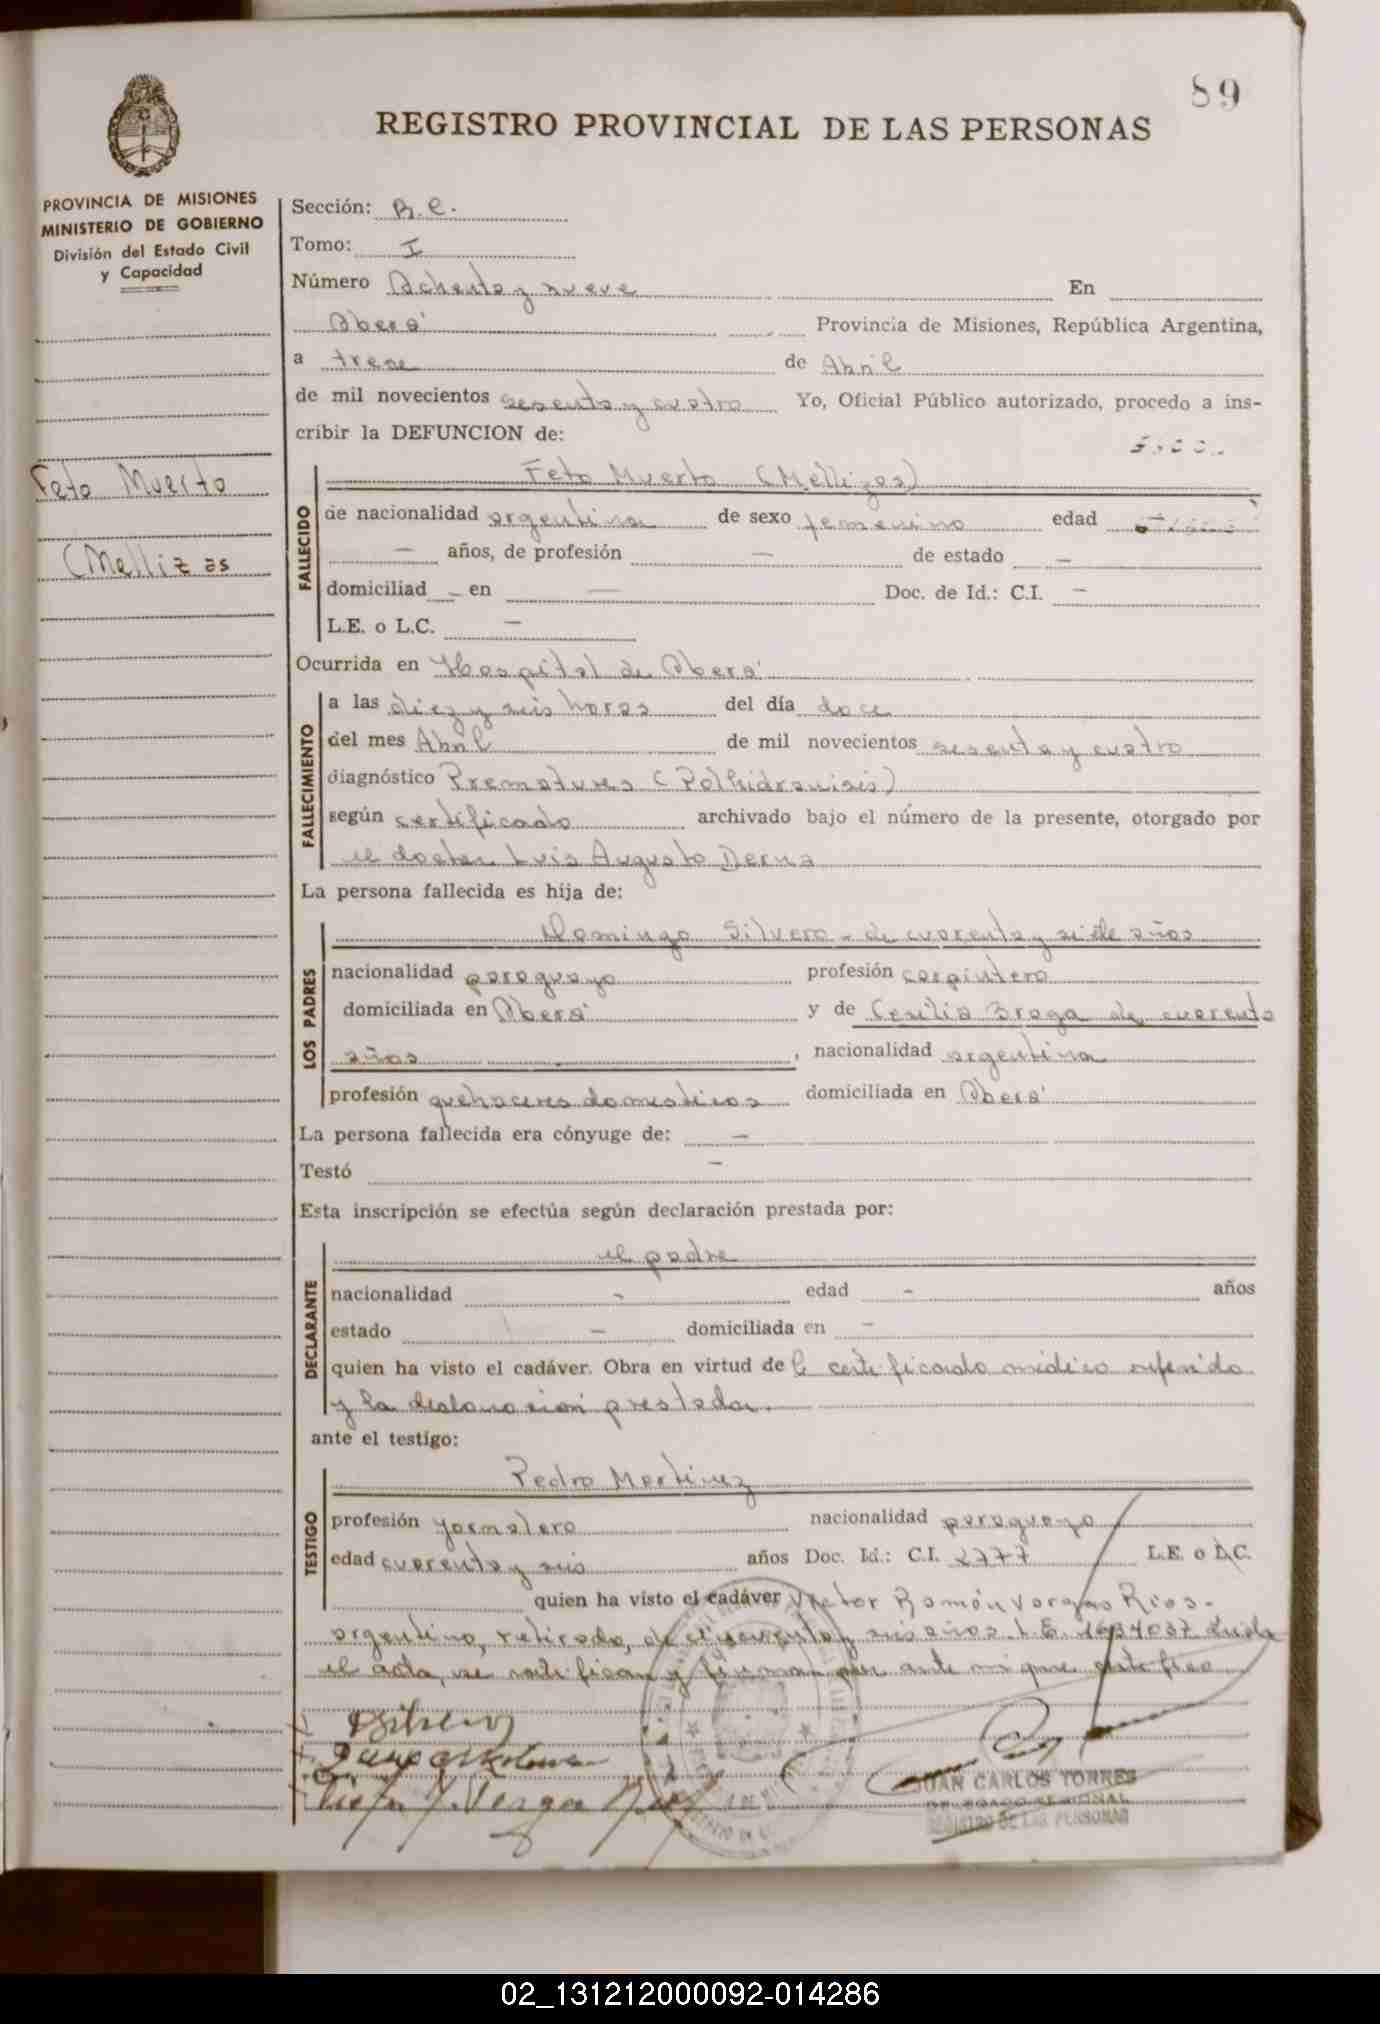 89
REGISTRO PROVINCIAL DE LAS PERSONAS
PROVINCIA DE MISIONES
MINISTERIO DE GOBIERNO
División del Estado Civil
y Capacidad
Feto Muerto
(Mellizas
Sección: R.C.
Tomo: I
Número Ochenta y nueve En
Oberá Provincia de Misiones, República Argentina,
a trece de Abril
de mil novecientos sesenta y cuatro Yo, Oficial Público autorizado, procedo a ins-
cribir la DEFUNCION de:
Feto Muerto (Mellizas)
FALLECIDO
de nacionalidad argentina de sexo femenino edad
— años, de profesión — de estado —
domiciliad — en — Doc. de Id.: C.I. —
L.E. o L.C. —
Ocurrida en Hospital de Oberá
FALLECIMIENTO
a las diez y seis horas del día doce
del mes Abril de mil novecientos sesenta y cuatro
diagnóstico Prematures
según certificado archivado bajo el número de la presente, otorgado por
el doctor Luis Augusto Derna
La persona fallecida es hija de:
LOS PADRES
Domingo Silvero - de cuarenta y siete años
nacionalidad paraguayo profesión carpintero
domiciliada en Oberá y de Cecilia Braga de cuarenta
años, nacionalidad argentina
profesión quehaceres domesticos domiciliada en Oberá
La persona fallecida era cónyuge de: —
Testó —
Esta inscripción se efectúa según declaración prestada por:
DECLARANTE
el padre
nacionalidad - edad - años
estado — domiciliada en —
quien ha visto el cadáver. Obra en virtud de certificado médico referido
y la declaracion prestada.
ante el testigo:
TESTIGO
Pedro Martinez
profesión jornalero nacionalidad paraguayo
edad cuarenta y seis años Doc. Id.: C.I. 2777 L.E. o L.C.
quien ha visto el cadáver Victor Ramón Vargas Rios-
argentino, retirado, de cincuenta y seis años. L.E. 1634037
el acta, se ratifican y firman por ante mi que certifico
JUAN CARLOS TORRES
DELEGADO REGIONAL
REGISTRO DE LAS PERSONAS
02_131212000092-014286